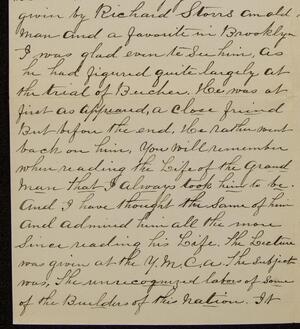 given by Richard Storrs an old
man and a favorite in Brooklyn
I was glad even to see him, as
he had figured quite largely at
the trial of Beecher. He, was at
first as appeared, a close friend
But before the end, He rather went
back on him, You will remember
when reading the Life of the Grand
Man that I always took him to be.
And I have thought the Same of him
And admired him all the more
Since reading his Life. The Lecture
was given at the Y.M.C.A. The Subject
was, The unrecognized labors of Some
of the Builders of this Nation. It